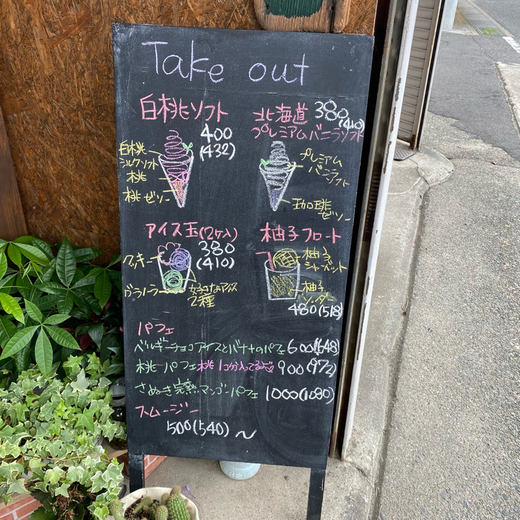 Take out
白桃ソフト
400
(432)
白桃
シルクソフト
桃
桃ゼリー
北海道 380
(410)
プレミアムバニラソフト
プレミアム
バニラ
ソフト
珈琲
ゼリー
アイス玉(2ヶ入)
380
(410)
クッキー
グラノーラ
2種
柚子フロート
柚子
シャーベット
柚子
ソーダー
480(518)
パフェ
ベルギーチョコアイスとバナナのパフェ 600(648)
桃パフェ 桃1コ分入ってるよ 900(972)
さぬき完熟マンゴーパフェ 1000(1080)
スムージー
500(540) ~